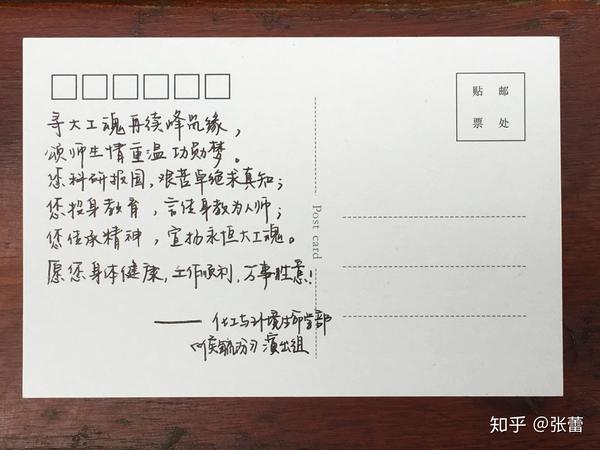 寻大工魂再续峰岚缘，
颂师生情重温功勋梦。
您科研报国，艰苦卓绝求真知；
您投身教育，言传身教为人师；
您传承精神，宣扬永恒大工魂。
愿您身体健康，工作顺利，万事胜意！
—— 化工与环境生命学部
《侯毓汾》演出组
Post card
贴 邮
票 处
知乎 @张蕾